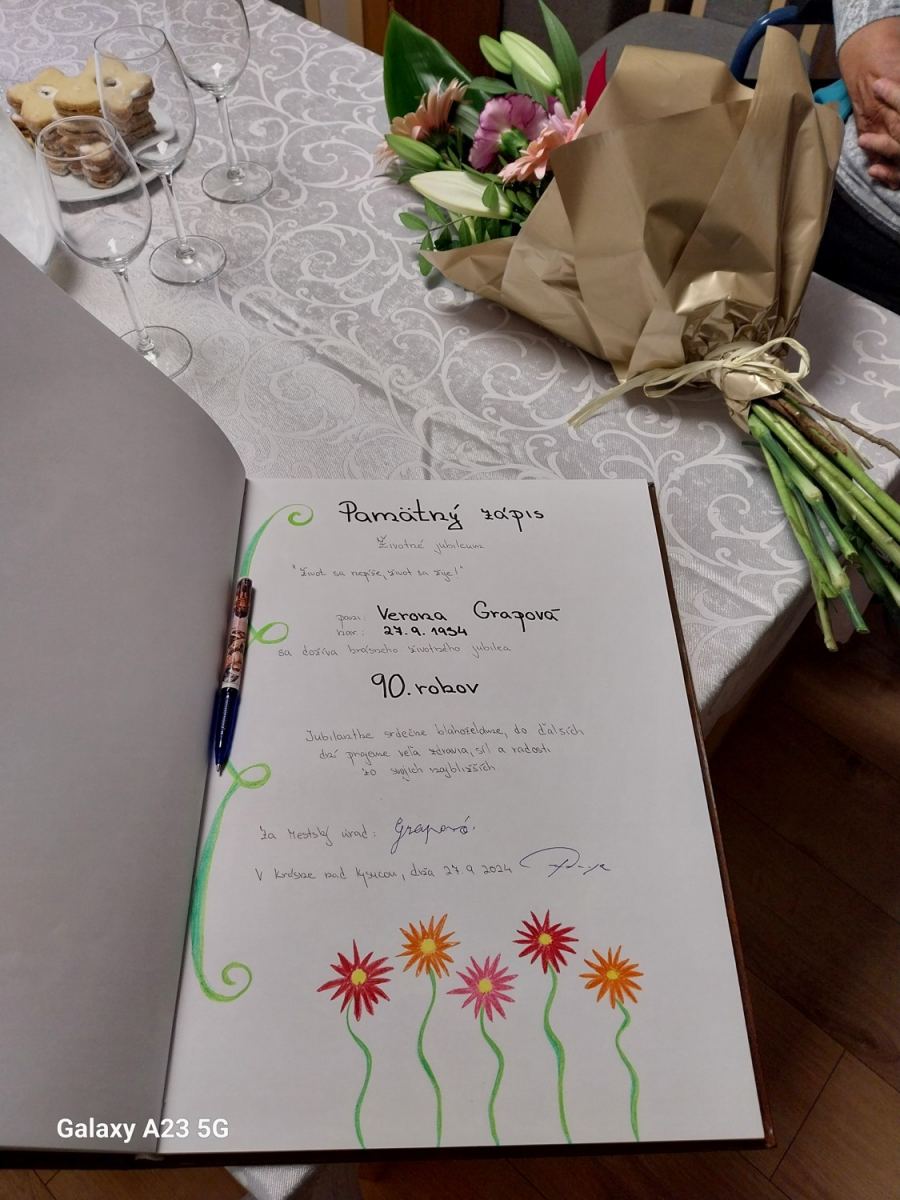 Pamätný zápis
Životné jubileum
"Život sa nepíše, život sa žije!"
pani: Verona Grapová
nar.: 27.9.1934
sa dožíva krásneho životného jubilea
90. rokov
Jubilantke srdečne blahoželáme, do ďalších
dní prajeme veľa zdravia, síl a radosti
zo svojich najbližších
Za Mestský úrad: Grapová
V Krásne nad Kysucou, dňa 27.9.2024
Galaxy A23 5G